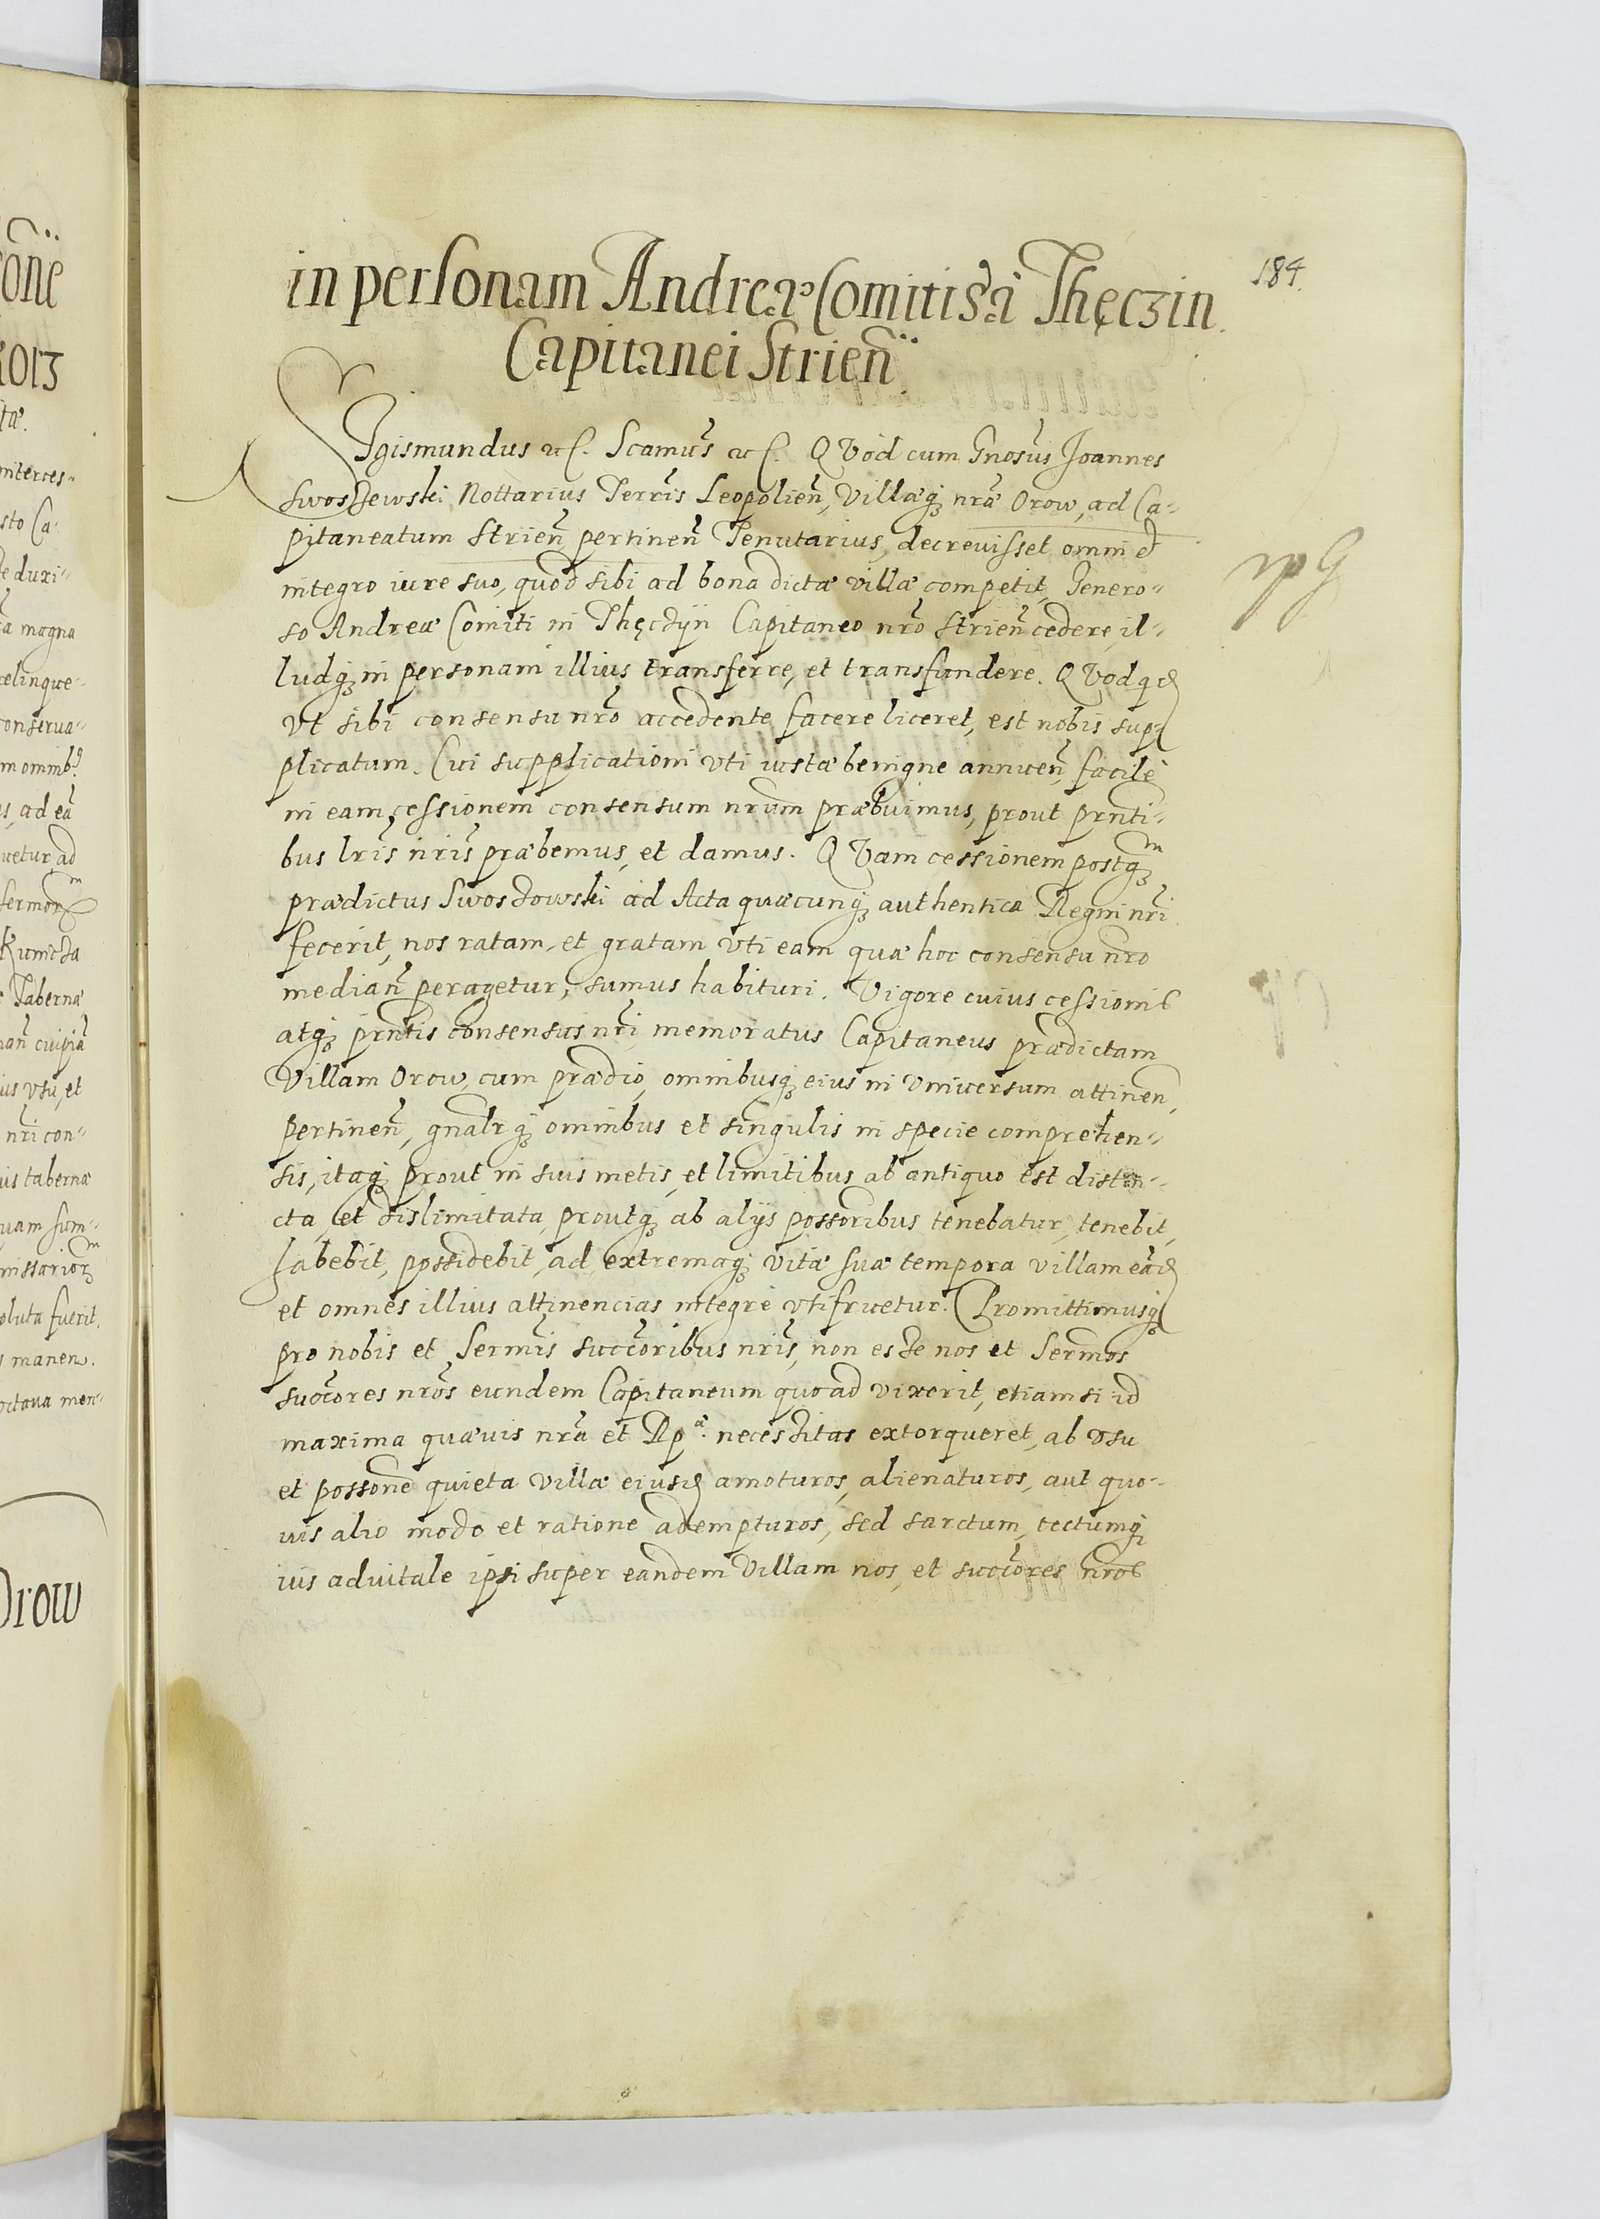 184.
in personam Andreæ Comitis à Thęczin
Capitanei Strień
Sigismundus etc. Scamus etc. QVod cum Gnosus Joannes
Swoszewski Nottarius Terris Leopolień, Villæq nræ Orow, ad Ca-
pitaneatum Strień pertineń Tenutarius, decrevisset omni et
integro iure suo, quod sibi ad bona dictæ villæ competit, Genero-
so Andreæ Comiti in Thęczyn Capitaneo nro Strień cedere, il-
ludq in personam illius transferre, et transfundere. QVodqd
Vt sibi consensu nro accedente facere liceret, est nobis sup-
plicatum. Cui supplicationi vti iustæ benigne annueń, facile
in eam cessionem consensum nrum præbuimus, prout prnti-
bus lris nris præbemus, et damus. QVam cessionem postqm
prædictus Swoszowski ad Acta quæcunq authentica Regni nri
fecerit, nos ratam, et gratam vti eam quæ hoc consensu nro
mediań peragetur, sumus habituri. Vigore cuius cessionis
atq prntis consensus nri memoratus Capitaneus prædictam
Villam Orow, cum prædio, omnibusq eius in vniversum attineń,
pertineń, gnalrq omnibus et singulis in specie comprehen-
sis, itaq prout in suis metis, et limitibus ab antiquo est distin-
cta, et dislimitata, proutq ab alys possoribus tenebatur, tenebit,
habebit, possidebit, ad extremaq vitæ suæ tempora villam eand
et omnes illius attinencias integre vtifruetur. Promittimusq
pro nobis et Sermis succoribus nris, non esse nos et Sermos
succores nros eundem Capitaneum quoad vixerit, etiamsi id
maxima quævis nra et Rpa. necessitas extorqueret, ab vsu
et possone quieta villæ eiusd amoturos, alienaturos, aut quo-
vis alio modo et ratione adempturos, sed sarctum, tectumq
ius advitale ipsi super eandem Villam nos, et succores nros